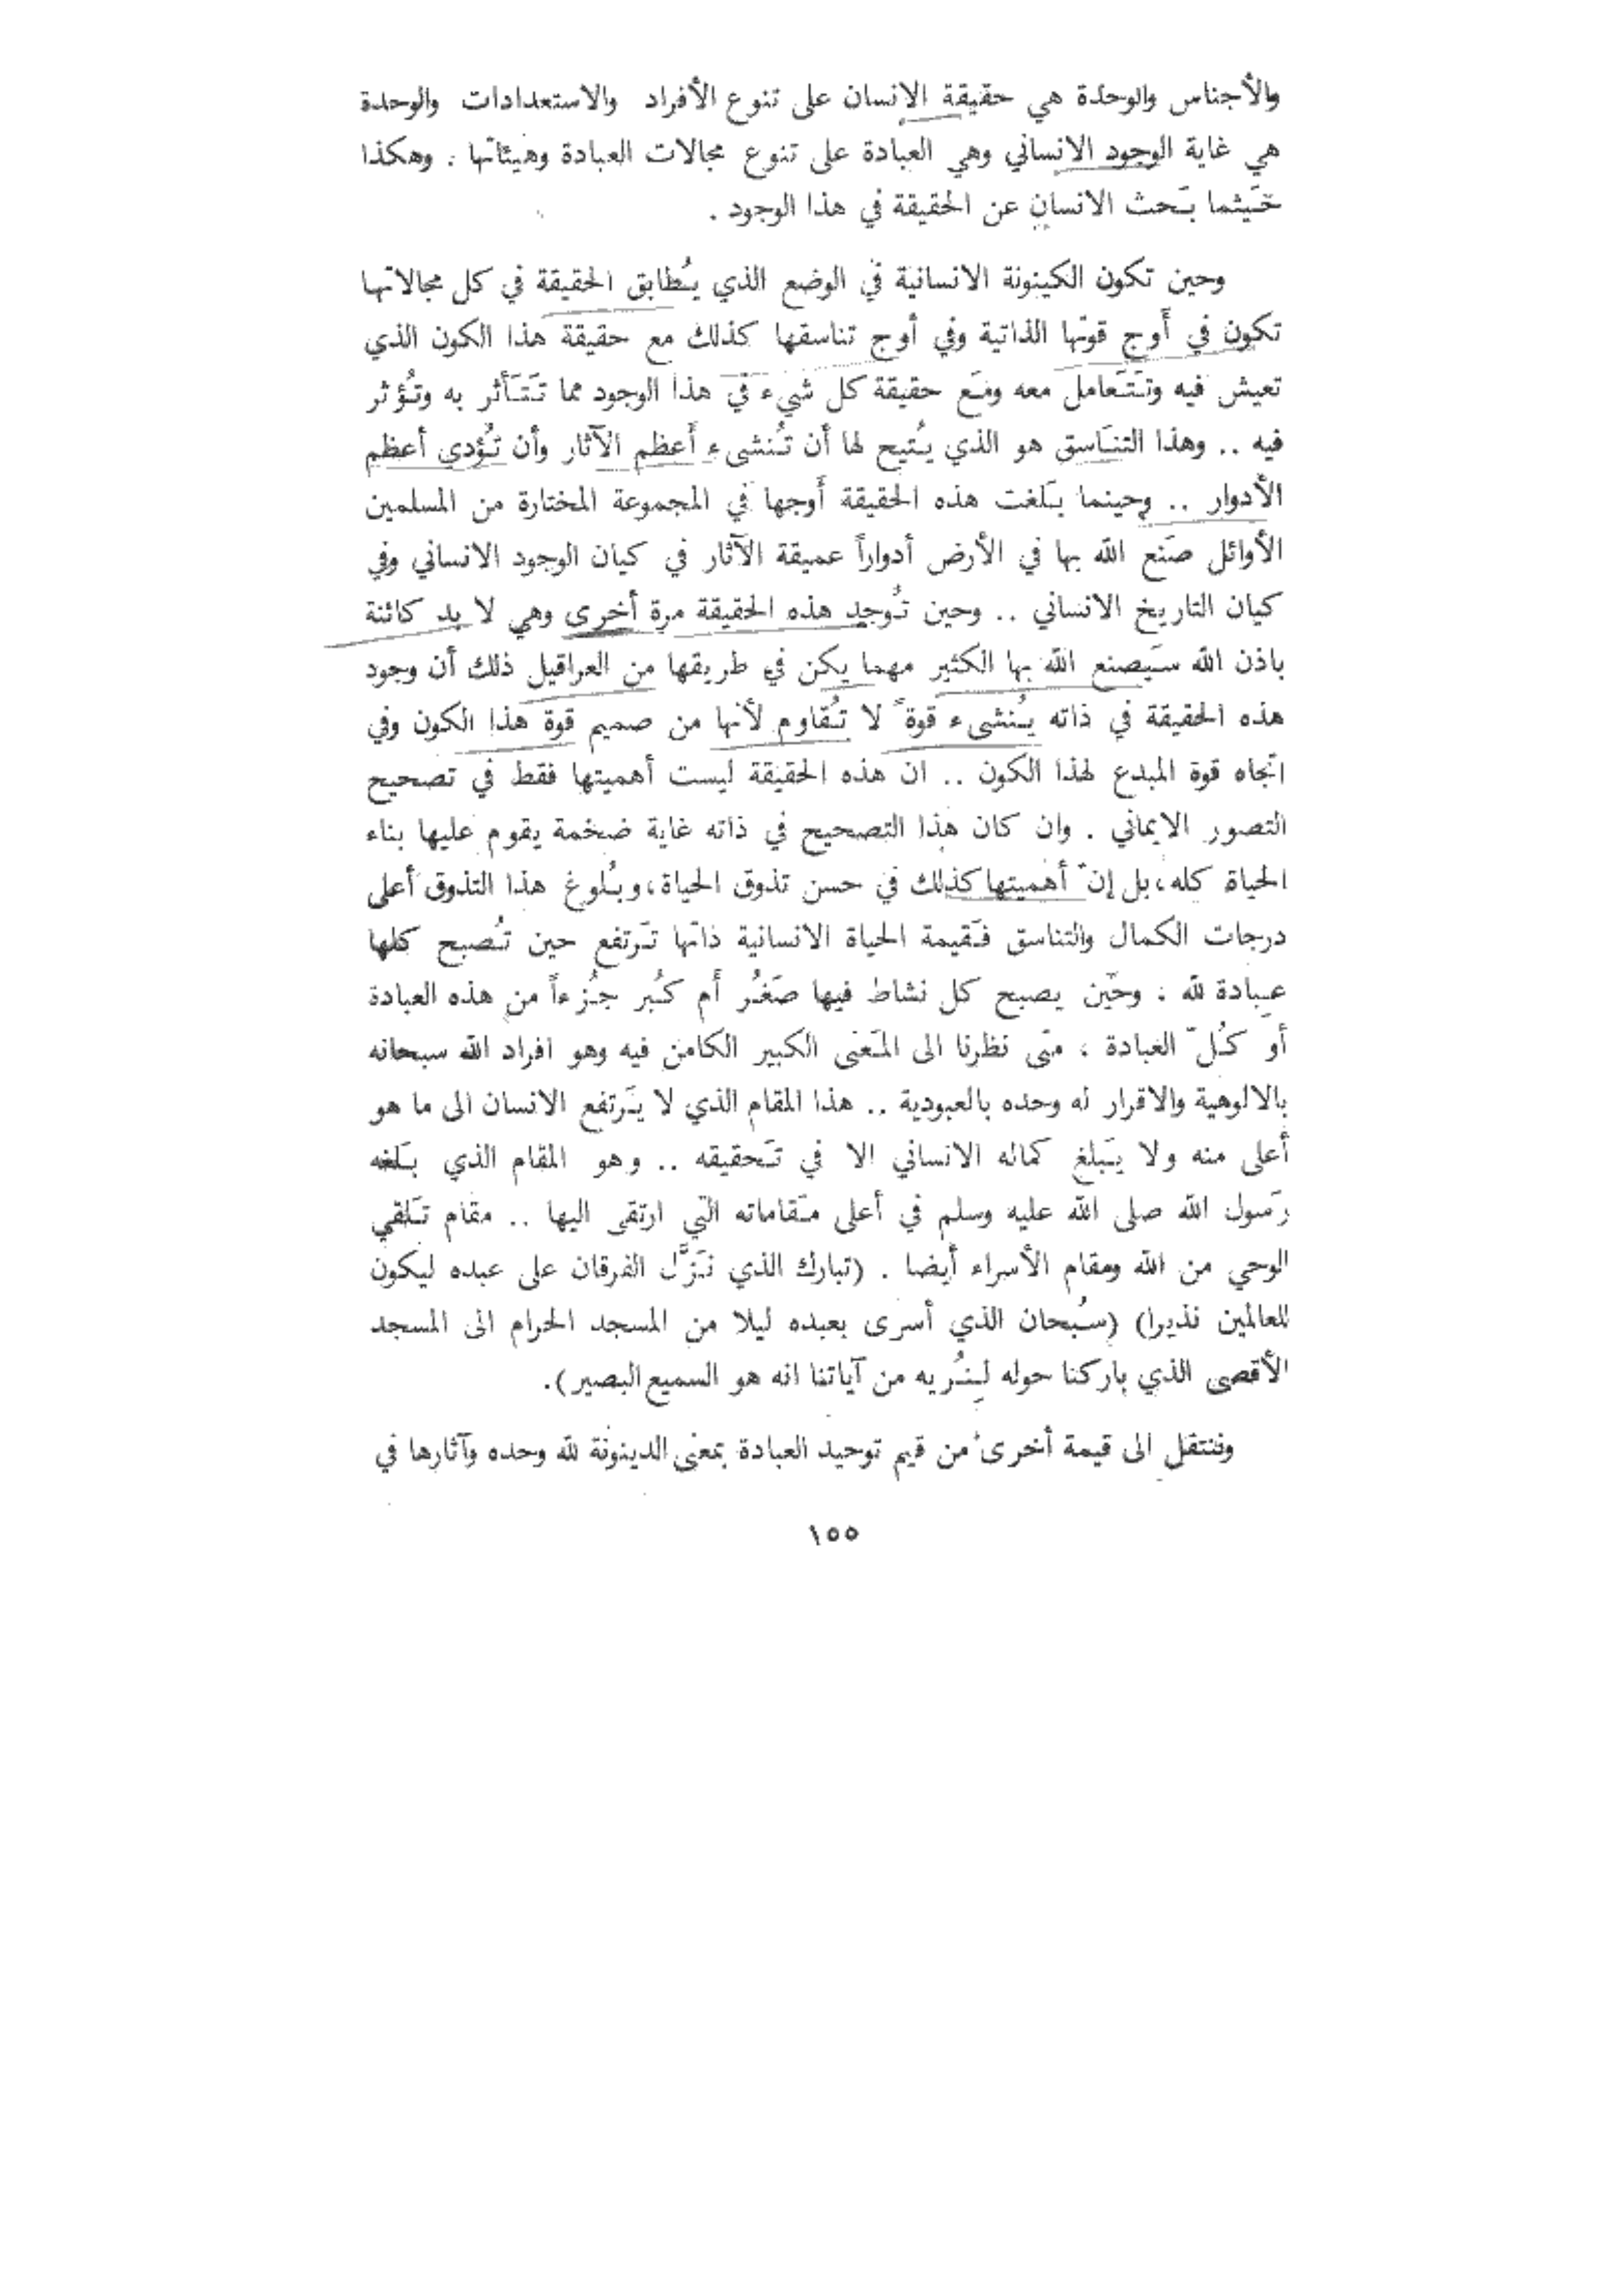 والأجناس والوحدة هي حقيقة الإنسان على تنوع الأفراد والاستعدادات والوحدة
هي غاية الوجود الانساني وهي العبادة على تنوع مجالات العبادة وهيئاتها . وهكذا
حَيثما بَحث الانسان عن الحقيقة في هذا الوجود .
وحين تكون الكينونة الانسانية في الوضع الذي يُطابق الحقيقة في كل مجالاتها
تكون في أَوج قوتها الذاتية وفي أوج تناسقها كذلك مع حقيقة هذا الكون الذي
تعيش فيه وتَتَعامل معه ومَع حقيقة كل شيء في هذا الوجود مما تَتَأثر به وتُؤثر
فيه .. وهذا التنَاسق هو الذي يُتيح لها أن تُنشىء أَعظم الآثار وأن تُؤدي أعظم
الأدوار .. وحينما بَلغت هذه الحقيقة أَوجها في المجموعة المختارة من المسلمين
الأوائل صَنع الله بها في الأرض أدواراً عميقة الآثار في كيان الوجود الانساني وفي
كيان التاريخ الانساني .. وحين تُوجد هذه الحقيقة مرة أخرى وهي لا بد كائنة
باذن الله سَيصنع الله بها الكثير مهما يكن في طريقها من العراقيل ذلك أن وجود
هذه الحقيقة في ذاته يُنشىء قوةً لا تُقاوم لأنها من صميم قوة هذا الكون وفي
اتجاه قوة المبدع لهذا الكون .. ان هذه الحقيقة ليست أهميتها فقط في تصحيح
التصور الايماني . وان كان هذا التصحيح في ذاته غاية ضخمة يقوم عليها بناء
الحياة كله، بل إنّ أهميتها كذلك في حسن تذوق الحياة، وبُلوغ هذا التذوق أعلى
درجات الكمال والتناسق فَقيمة الحياة الانسانية ذاتها تَرتفع حين تُصبح كلها
عِبادة لله . وحَين يصبح كل نشاط فيها صَغُر أَم كَبُر جُزءاً من هذه العبادة
أو كُلّ العبادة ، متى نظرنا الى المَعنى الكبير الكامن فيه وهو افراد الله سبحانه
بالالوهية والاقرار له وحده بالعبودية .. هذا المقام الذي لا يَرتفع الانسان الى ما هو
أعلى منه ولا يَبلغ كماله الانساني الا في تَحقيقه .. وهو المقام الذي بَلغه
رَسول الله صلى الله عليه وسلم في أعلى مَقاماته التي ارتقى اليها .. مقام تَلقي
الوحي من الله ومقام الأسراء أيضا . (تبارك الذي نَزَّل الفرقان على عبده ليكون
للعالمين نذيرا) (سُبحان الذي أسرى بعبده ليلا من المسجد الحرام الى المسجد
الأقصى الذي باركنا حوله لِنُريه من آياتنا انه هو السميع البصير).
وننتقل الى قيمة أخرى من قيم توحيد العبادة بمعنى الدينونة لله وحده وآثارها في
١٥٥